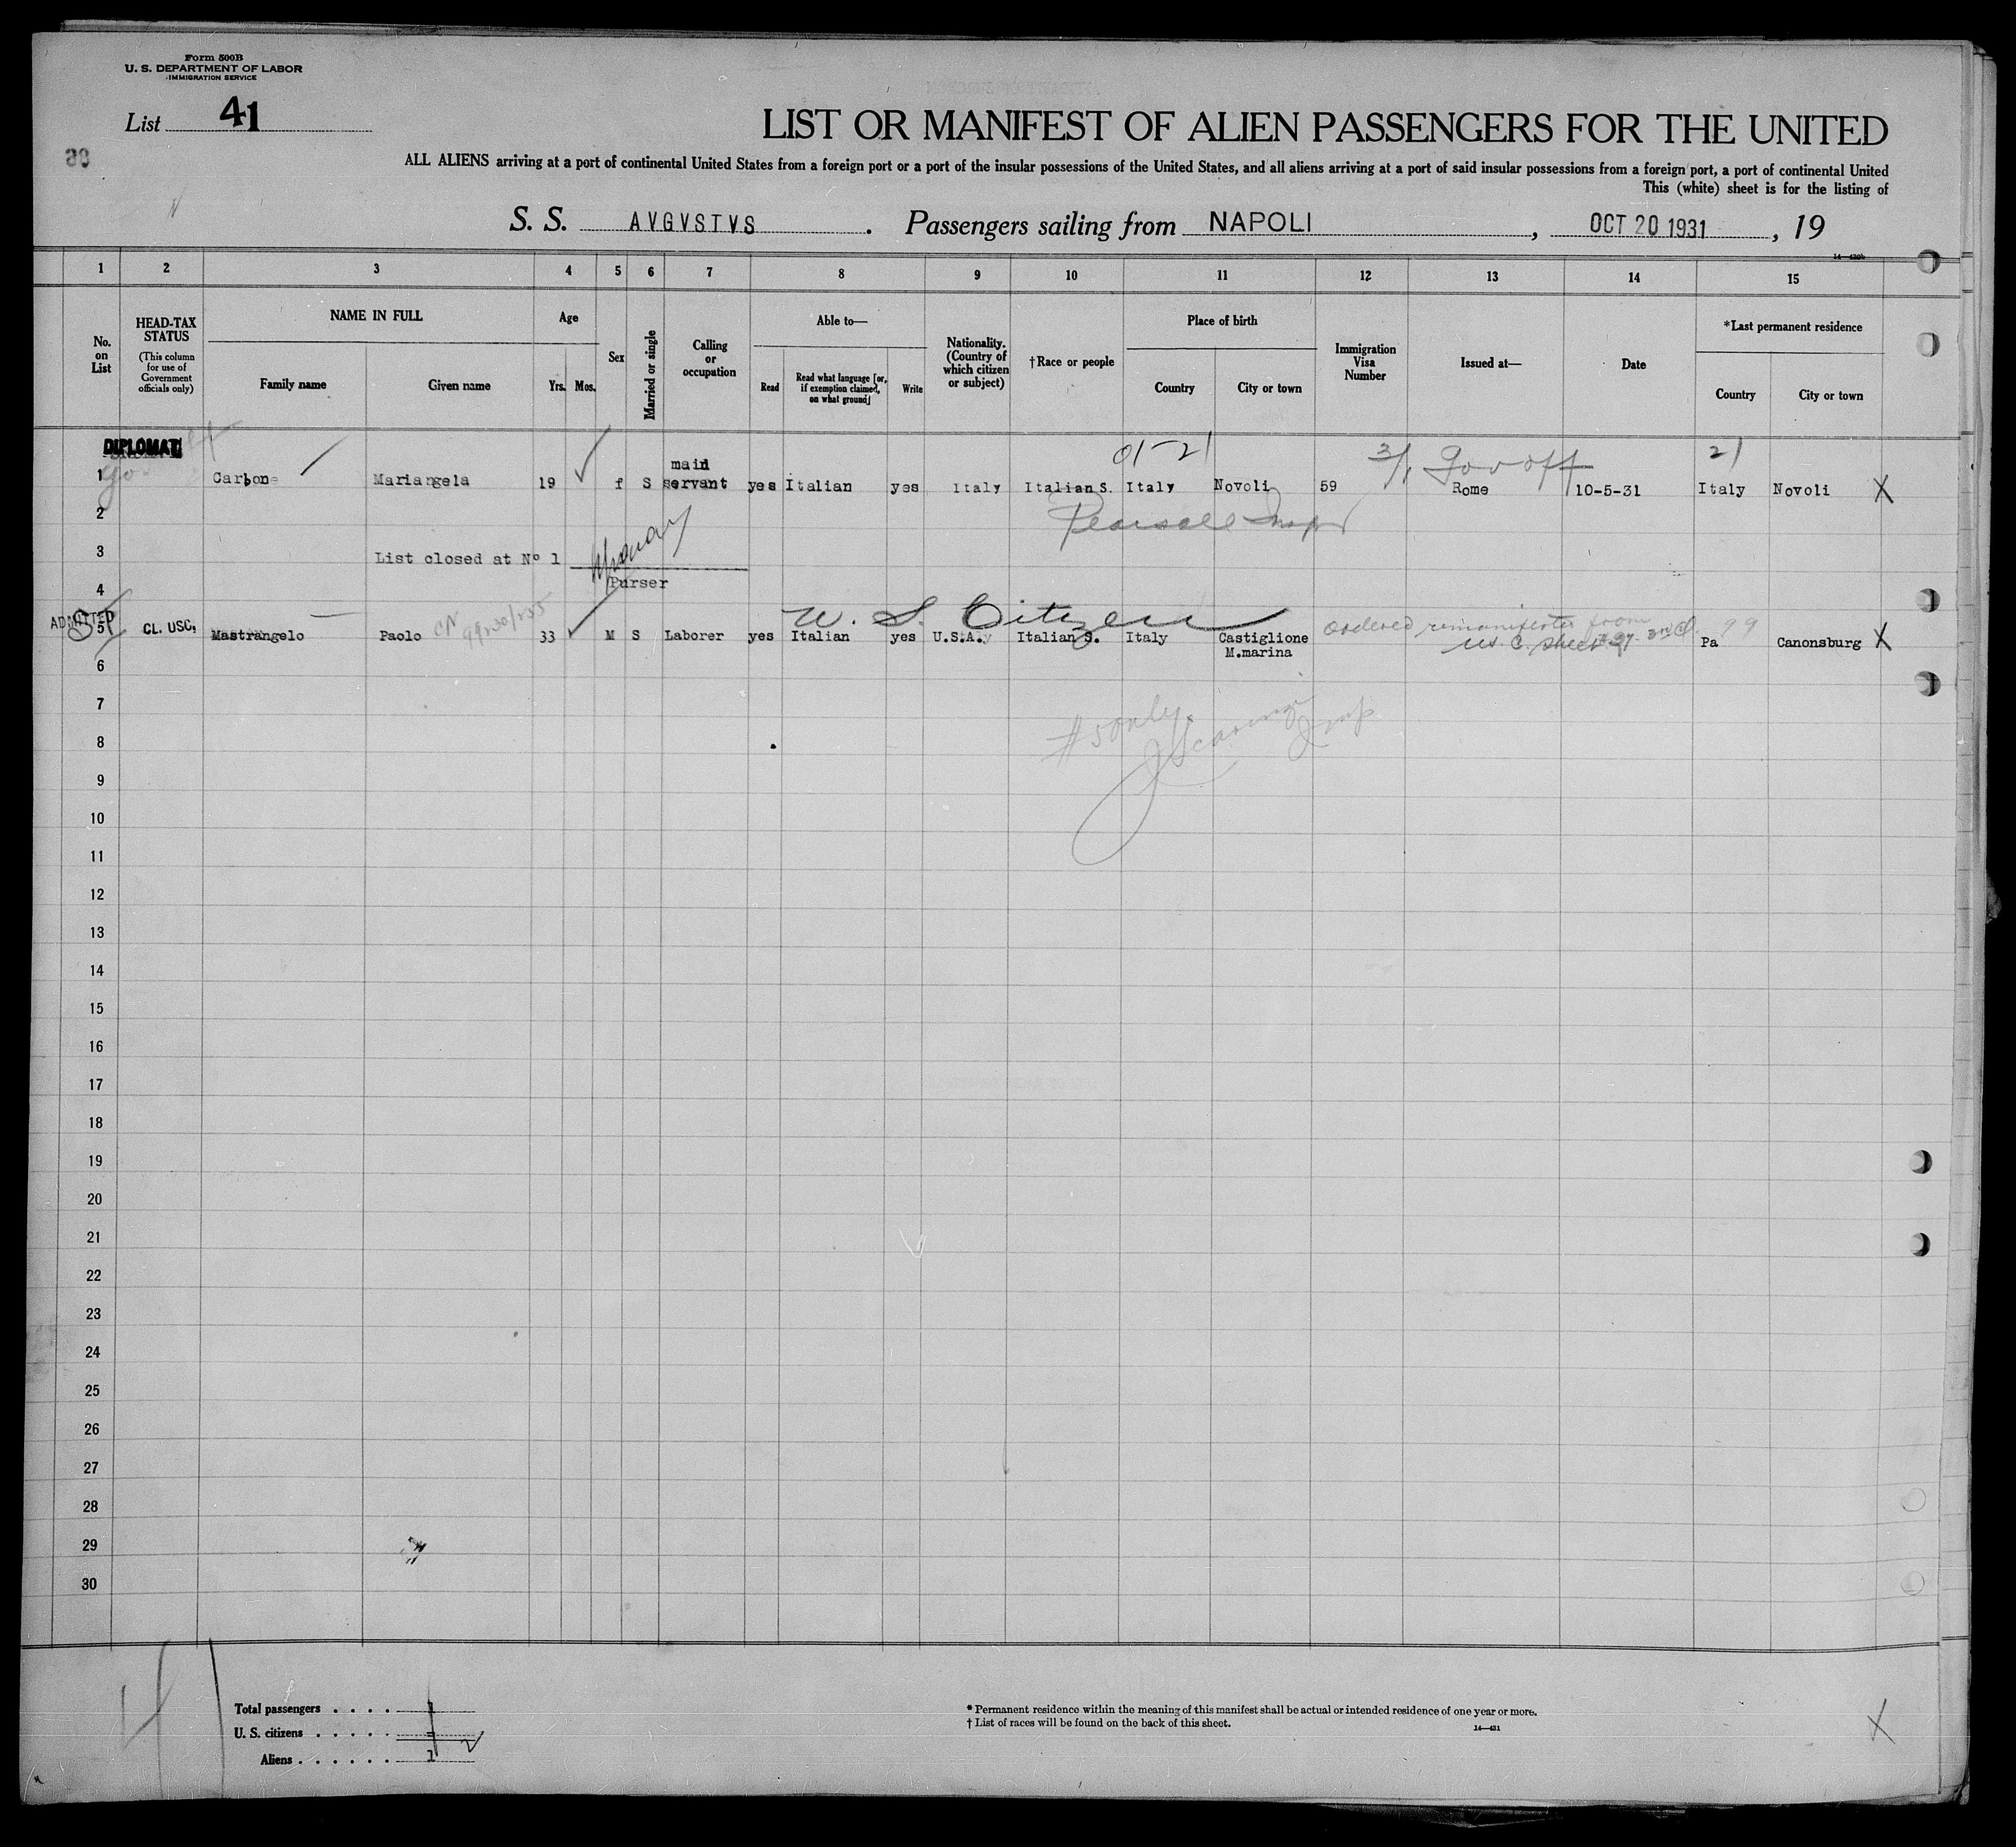 Form 500B
U. S. DEPARTMENT OF LABOR
IMMIGRATION SERVICE
List 41
LIST OR MANIFEST OF ALIEN PASSENGERS FOR THE UNITED
ALL ALIENS arriving at a port of continental United States from a foreign port or a port of the insular possessions of the United States, and all aliens arriving at a port of said insular possessions from a foreign port, a port of continental United
This (white) sheet is for the listing of
S. S. AVGVSTVS. Passengers sailing from NAPOLI, OCT 20 1931, 19
1 2 3 4 5 6 7 8 9 10 11 12 13 14 15
No. on List
HEAD-TAX STATUS
(This column for use of Government officials only)
NAME IN FULL
Family name
Given name
Age
Yrs. Mos.
Sex
Married or single
Calling or occupation
Able to—
Read
Read what language [or, if exemption claimed, on what ground]
Write
Nationality. (Country of which citizen or subject)
†Race or people
Place of birth
Country
City or town
Immigration Visa Number
Issued at—
Date
*Last permanent residence
Country
City or town
DIPLOMAT
01-21
3/1 Gov off
21
1 Carbone Mariangela 19 f S maid servant yes Italian yes Italy Italian S. Italy Novoli 59 Rome 10-5-31 Italy Novoli X
2
Pearsall Insp
3 List closed at Nº 1
Purser
4
U. S. Citizen
ADMITTED
5 CL. USC. Mastrangelo Paolo 33 M S Laborer yes Italian yes U.S.A. Italian S. Italy Castiglione M.marina Pa 99 Canonsburg X
ordered remanifested from
U.S. C. sheet
6
7
#5 only.
8
9
10
11
12
13
14
15
16
17
18
19
20
21
22
23
24
25
26
27
28
29
30
Total passengers . . . .
U. S. citizens . . . . .
2
Aliens . . . . . . 1
* Permanent residence within the meaning of this manifest shall be actual or intended residence of one year or more.
† List of races will be found on the back of this sheet.
14—431
X